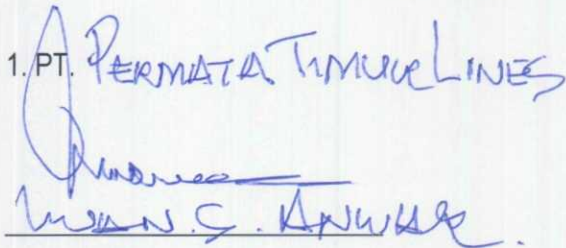 1. PT. PERMATA TIMUR LINES
IWAN. S. ANWAR.